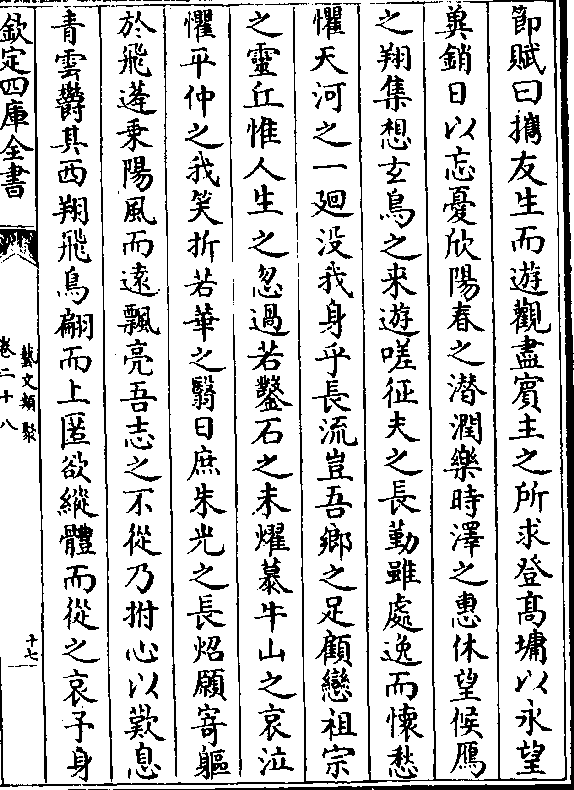 節賦曰攜友生而遊觀盡賓主之所求登髙墉以永望
兾銷日以忘憂欣陽春之潜潤樂時澤之惠休望候鴈
之翔集想玄鳥之来遊嗟征夫之長勤雖處逸而懷愁
懼天河之一廻没我身乎長流豈吾鄉之足顧戀祖宗
之靈丘惟人生之忽過若鑿石之未耀慕牛山之哀泣
懼平仲之我笑折若華之翳日庶朱光之長炤願寄軀
於飛蓬乘陽風而逺飄亮吾志之不從乃拊心以歎息
青雲鬱其西翔飛鳥翩而上匿欲縱體而從之哀予身
欽定四庫全書
藝文類聚
卷二十八
十七